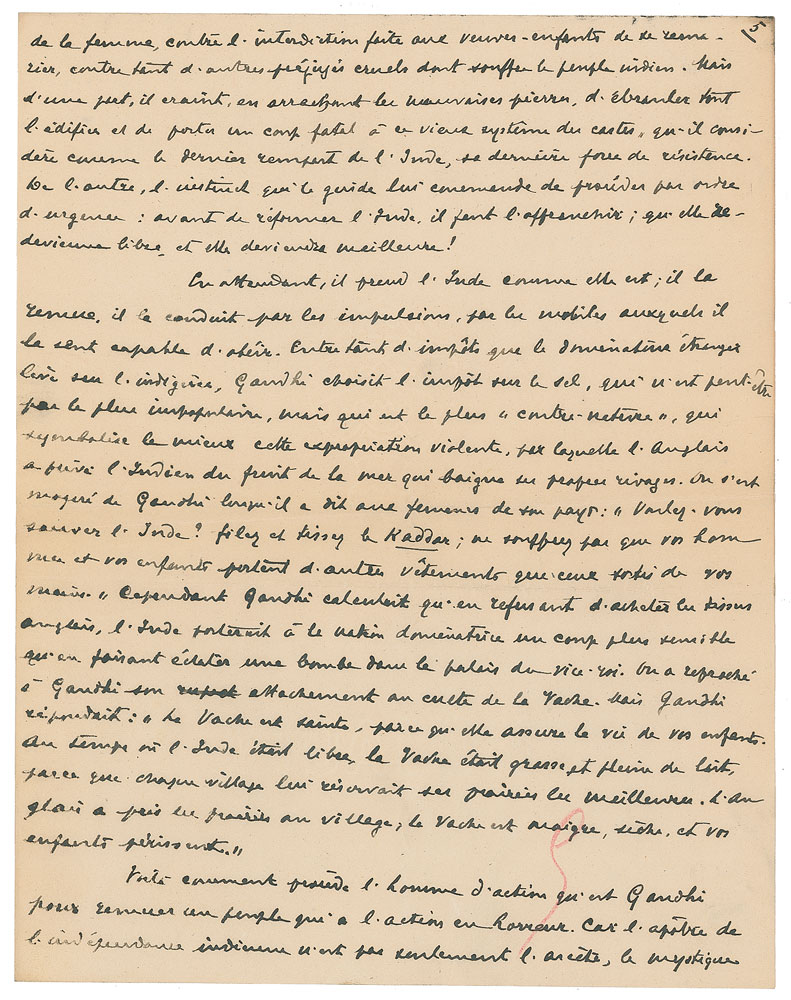 5
de la femme, contre l'interdiction faite aux veuves-enfants de se rema-
rier, contre tant d'autres préjugés cruels dont souffre le peuple indien. Mais
d'une part, il craint, en arrachant les mauvaises pierres, d'ébranler tout
l'édifice et de porter un coup fatal à ce vieux système des castes, qu'il consi-
dère comme le dernier rempart de l'Inde, sa dernière force de résistance.
De l'autre, l'instinct qui le guide lui commande de procéder par ordre
d'urgence : avant de réformer l'Inde, il faut l'affranchir ; qu'elle re-
devienne libre, et elle deviendra meilleure !
En attendant, il prend l'Inde comme elle est ; il la
remue, il la conduit par les impulsions, par les mobiles auxquels il
la sent capable d'obéir. Entre tant d'impôts que le dominateur étranger
lève sur l'indigène, Gandhi choisit l'impôt sur le sel, qui n'est peut-être
pas le plus impopulaire, mais qui est le plus « contre-nature », qui
symbolise le mieux cette expropriation violente, par laquelle l'Anglais
a privé l'Indien du fruit de la mer qui baigne ses propres rivages. On s'est
moqué de Gandhi lorsqu'il a dit aux femmes de son pays : « Voulez-vous
sauver l'Inde ? filez et tissez le Kaddar ; ne souffrez pas que vos hom-
mes et vos enfants portent d'autres vêtements que ceux sortis de vos
mains. » Cependant Gandhi calculait qu'en refusant d'acheter les tissus
anglais, l'Inde porterait à la nation dominatrice un coup plus sensible
qu'en faisant éclater une bombe dans le palais du vice-roi. On a reproché
à Gandhi son attachement au culte de la Vache. Mais Gandhi
répondait : « La Vache est sainte, parce qu'elle assure la vie de vos enfants.
Au temps où l'Inde était libre, la Vache était grasse, et pleine de lait,
parce que chaque village lui réservait ses prairies les meilleures. L'An
glais a pris les prairies au village ; la Vache est maigre, sèche, et vos
enfants périssent. »
Voilà comment procède l'homme d'action qu'est Gandhi
pour remuer un peuple qui a l'action en horreur. Car l'apôtre de
l'indépendance indienne n'est pas seulement l'ascète, le mystique